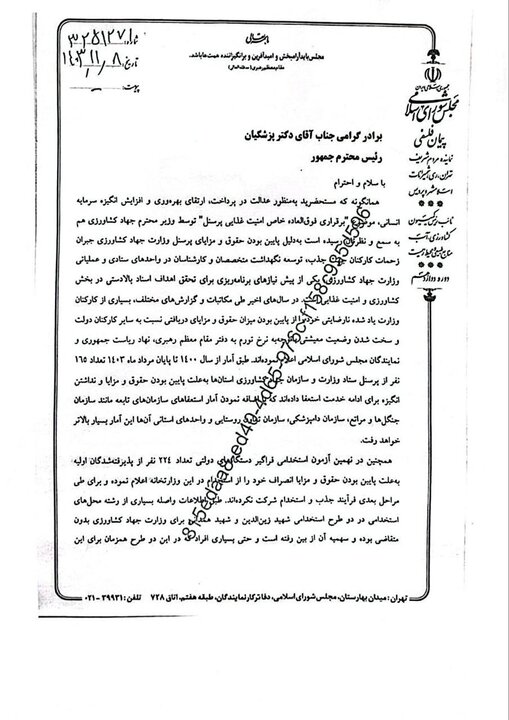 باسمه تعالی
مجلس باید آرامبخش و امیدآفرین و برانگیزاننده همت‌ها باشد.
مقام معظم رهبری (مدظله العالی)
شماره: ۳۲۵۱۲۷
تاریخ: ۱۴۰۳/۱۱/۸
پیوست:
جمهوری اسلامی ایران
مجلس شورای اسلامی
پیمان فلسفی
نماینده مردم شریف
تهران، ری، شمیرانات
اسلامشهر و پردیس
نائب رئیس کمیسیون
کشاورزی، آب
منابع طبیعی و محیط زیست
دوره دوازدهم
برادر گرامی جناب آقای دکتر پزشکیان
رئیس محترم جمهور
با سلام و احترام
همانگونه که مستحضرید به‌منظور عدالت در پرداخت، ارتقای بهره‌وری و افزایش انگیزه سرمایه
انسانی، موضوع "برقراری فوق‌العاده خاص امنیت غذایی پرسنل" توسط وزیر محترم جهاد کشاورزی هم
به سمع و نظرتان رسیده است به‌دلیل پایین بودن حقوق و مزایای پرسنل وزارت جهاد کشاورزی جبران
زحمات کارکنان جهت جذب، توسعه نگهداشت متخصصان و کارشناسان در واحدهای ستادی و عملیاتی
وزارت جهاد کشاورزی یکی از پیش نیازهای برنامه‌ریزی برای تحقق اهداف اسناد بالادستی در بخش
کشاورزی و امنیت غذایی است. در سال‌های اخیر طی مکاتبات و گزارش‌های مختلف، بسیاری از کارکنان
وزارت یاد شده نارضایتی خود را از پایین بودن میزان حقوق و مزایای دریافتی نسبت به سایر کارکنان دولت
و سخت شدن وضعیت معیشتی باتوجه به نرخ تورم به دفتر مقام معظم رهبری، نهاد ریاست جمهوری و
نمایندگان مجلس شورای اسلامی اعلام نموده‌اند. طبق آمار از سال ۱۴۰۰ تا پایان مرداد ماه ۱۴۰۳ تعداد ۱۶۵
نفر از پرسنل ستاد وزارت و سازمان جهاد کشاورزی استان‌ها به‌علت پایین بودن حقوق و مزایا و نداشتن
انگیزه برای ادامه خدمت استعفا داده‌اند که با اضافه نمودن آمار استعفاهای سازمان‌های تابعه مانند سازمان
جنگل‌ها و مراتع، سازمان دامپزشکی، سازمان تعاون روستایی و واحدهای استانی آن‌ها این آمار بسیار بالاتر
خواهد رفت.
همچنین در نهمین آزمون استخدامی فراگیر دستگاه‌های دولتی تعداد ۲۲۴ نفر از پذیرفته‌شدگان اولیه
به‌علت پایین بودن حقوق و مزایا انصراف خود را از استخدام در این وزارتخانه اعلام نموده و برای طی
مراحل بعدی فرآیند جذب و استخدام شرکت نکرده‌اند. طبق اطلاعات واصله بسیاری از رشته محل‌های
استخدامی در دو طرح استخدامی شهید زین‌الدین و شهید همدانی برای وزارت جهاد کشاورزی بدون
متقاضی بوده و سهمیه آن از بین رفته است و حتی بسیاری افراد که در این دو طرح همزمان برای این
تهران: میدان بهارستان، مجلس شورای اسلامی، دفاتر کار نمایندگان، طبقه هفتم، اتاق ۷۲۸ تلفن: ۳۹۹۳۱-۰۲۱